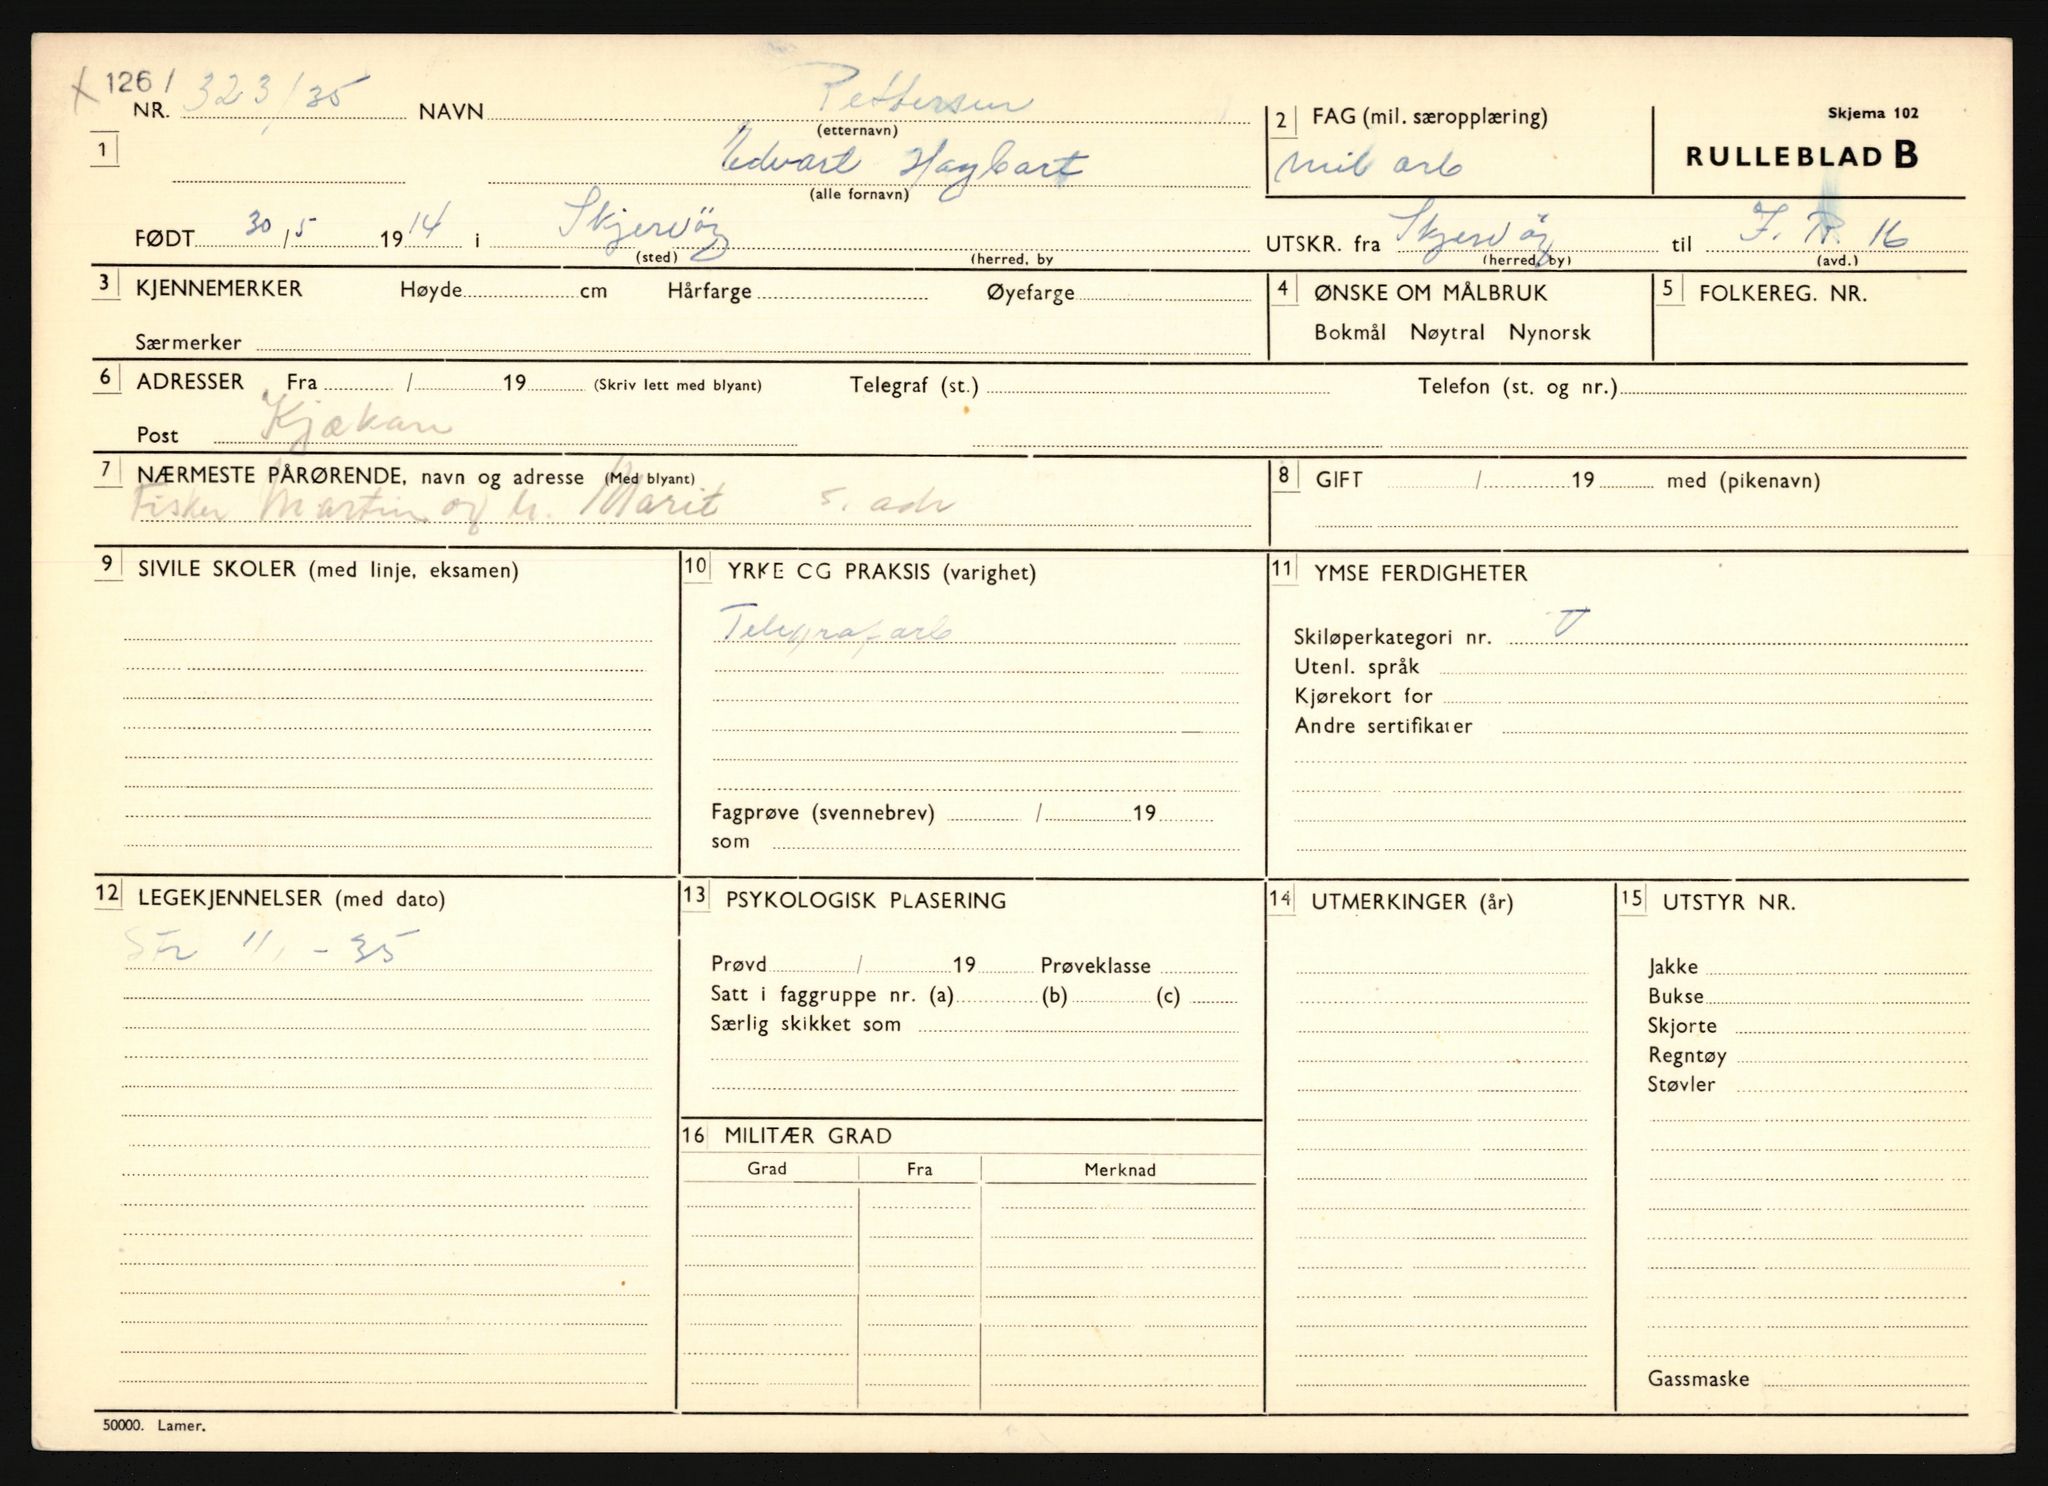 x 1261
NR. 323/35 NAVN Pettersen
(etternavn)
2 FAG (mil. særopplæring)
Skjema 102
1 Edvart Hagbart
(alle fornavn)
mil arb
RULLEBLAD B
FØDT 30/5 1914 i Skjervöy
(sted) (herred, by
UTSKR. fra Skjervöy til I. R. 16
(herred, by) (avd.)
3 KJENNEMERKER Høyde cm Hårfarge Øyefarge
Særmerker
4 ØNSKE OM MÅLBRUK
Bokmål Nøytral Nynorsk
5 FOLKEREG. NR.
6 ADRESSER Fra / 19 (Skriv lett med blyant) Telegraf (st.) Telefon (st. og nr.)
Post Kjækan
7 NÆRMESTE PÅRØRENDE, navn og adresse (Med blyant)
Fisker Martin og h. Marit s. adr
8 GIFT / 19 med (pikenavn)
9 SIVILE SKOLER (med linje, eksamen)
10 YRKE CG PRAKSIS (varighet)
Telegrafarb
Fagprøve (svennebrev) / 19
som
11 YMSE FERDIGHETER
Skiløperkategori nr.
Utenl. språk
Kjørekort for
Andre sertifikater
12 LEGEKJENNELSER (med dato)
Str 11. - 35
13 PSYKOLOGISK PLASERING
Prøvd / 19 Prøveklasse
Satt i faggruppe nr. (a) (b) (c)
Særlig skikket som
14 UTMERKINGER (år)
15 UTSTYR NR.
Jakke
Bukse
Skjorte
Regntøy
Støvler
Gassmaske
16 MILITÆR GRAD
Grad Fra Merknad
50000. Lamer.